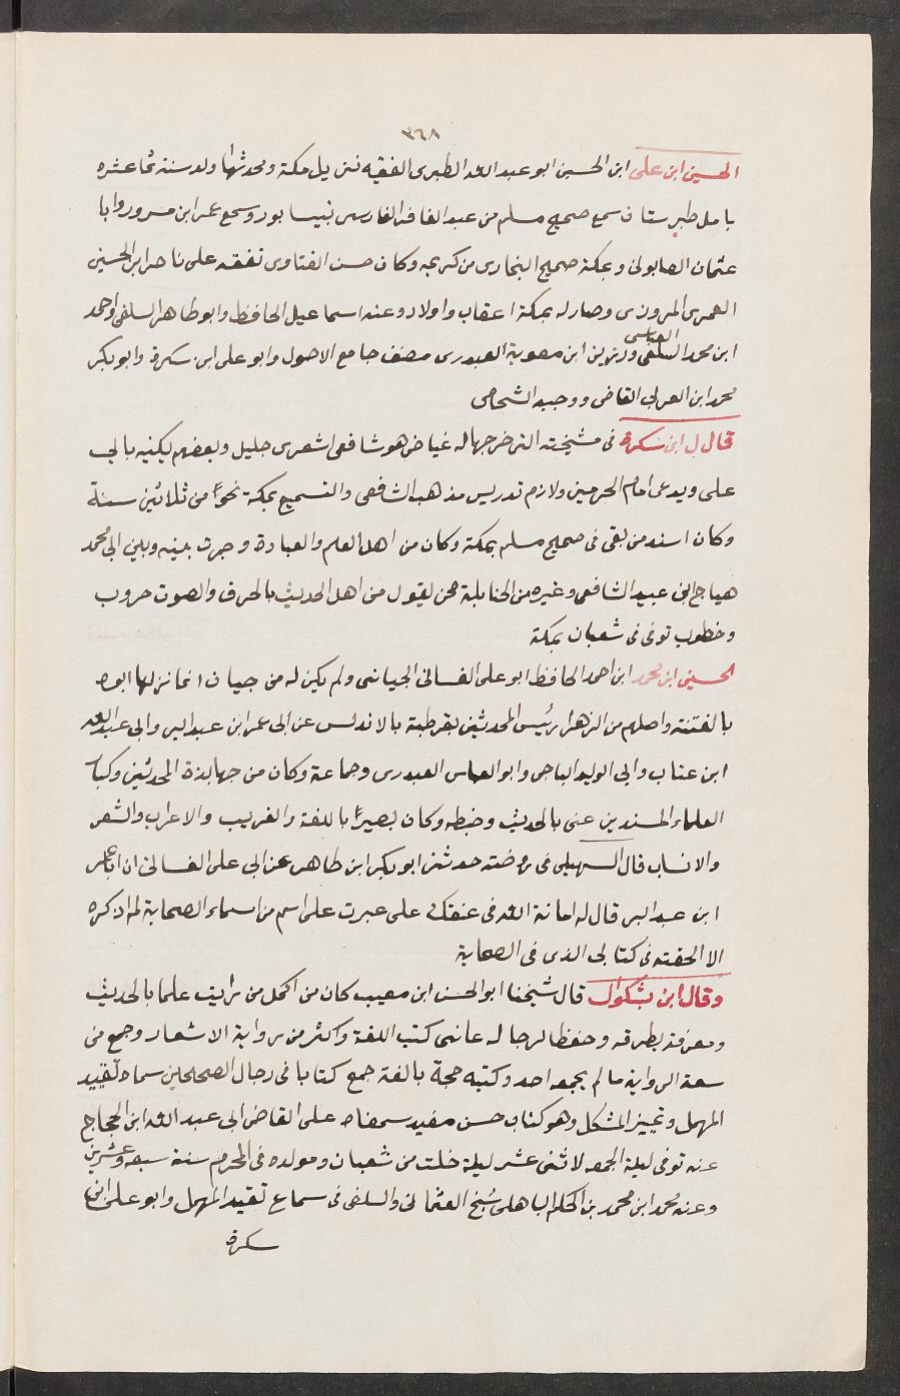 ٣٦٨
الحسين ابن على ابن الحسين ابو عبد الله الطبرى الفقيه نزيل مكة ومحدثها ولد سنة ثما عشره
بامل طبرستان سمع صحيح مسلم من عبد الغافر الفارسى بنيسابور وسمع عمر ابن مسرور وابا
عثمان الصابونى وبمكة صحيح البخارى من كريمه وكان حسن الفتاوى تفقه على ناصر ابن الحسين
العمرى المروزى وصار له بمكة اعقاب واولاد وعنه اسماعيل الحافظ وابو طاهر السلفى واحمد
ابن محمد السلفى العباسى ورزين ابن معوية العبدرى مصنف جامع الاصول وابو على ابن سكرة وابو بكر
محمد ابن العربى القاضى ووجيه الشحامى
قال ابن سكرة فى مشيخته التى خرجها له عياض هو شافعى اشعرى جليل وبعضهم يكنيه بابى
على ويدعى امام الحرمين ولازم تدريس مذهب الشافعى والتسميع بمكة نحوًا من ثلاثين سنة
وكان اسند من بقى فى صحيح مسلم بمكة وكان من اهل العلم والعبادة وجرت بينه وبين ابى محمد
هياج ابن عبيد الشافعى وغيره من الحنابلة ممن يقول من اهل الحديث بالحرف والصوت حروب
وخطوب توفى فى شعبان بمكة
الحسين ابن محمد ابن احمد الحافظ ابو على الغسانى الجيانى ولم يكن له من جيان انما نزلها ابوه
بالفتنة واصلهم من الزهرا رئيس المحدثين بقرطبة بالاندلس عن ابى عمر ابن عبد البر وابى عبد الله
ابن عتاب وابى الوليد الباجى وابو العباس العبدرى وجماعة وكان من جهابذة المحدثين وكبار
العلماء المسندين عنى بالحديث وضبطه وكان بصيرًا باللغة والغريب والاعراب والشعر
والانساب قال السهيلى فى روضته حدثنى ابو بكر ابن طاهر عن ابى على الغسانى ان ابا عمر
ابن عبد البر قال له امانة الله فى عنقك متى عبرت على اسم من اسماء الصحابة لم اذكره
الا الحقته فى كتابى الذى فى الصحابة
وقال ابن بشكوال قال شيخنا ابو الحسن ابن مغيب كان من اكمل من رايت علما بالحديث
ومعرفة بطرقه وحفظا لرجاله عانى كتب اللغة واكثر من رواية الاشعار وجمع من
سعة الرواية ما لم يجمعه احد وكتبه حجة بالغة جمع كتابا فى رجال الصحيحين سماه تقييد
المهمل وتمييز المشكل وهو كتاب حسن مفيد سمعناه على القاضى ابى عبد الله ابن الحجاج
عنه توفى ليلة الجمعه لاثنى عشر ليلة خلت من شعبان ومولده فى المحرم سنة سبعه وعشرين
وعنه محمد ابن محمد بن الحكم الباهلى شيخ العثمانى والسلفى فى سماع تقييد المهمل وابو على ابن
سكرة